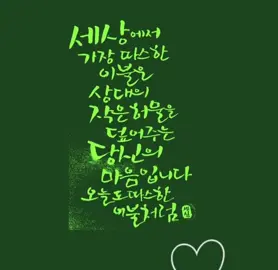 세상에서
가장 따스한
이불은
상대의
작은 허물을
덮어주는
당신의
마음입니다
오늘도 따스한
이불처럼